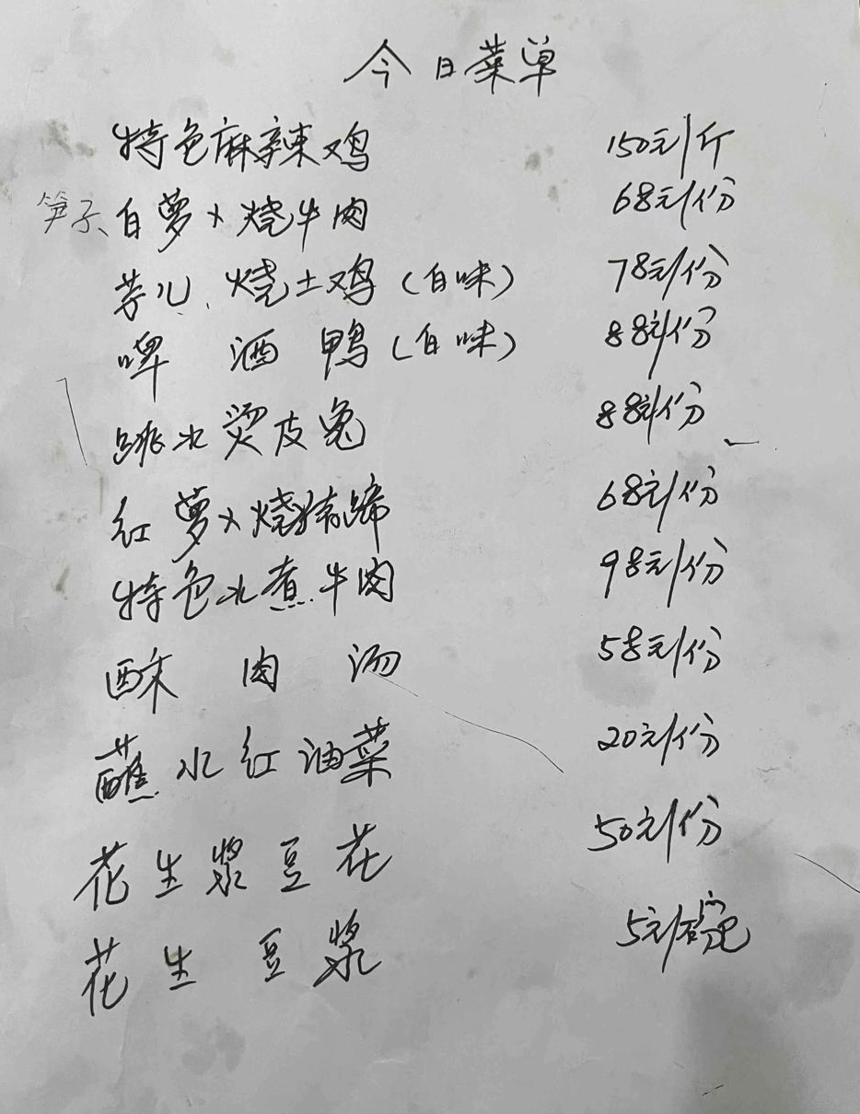 今日菜单
特色麻辣鸡 150元/斤
笋子、白萝卜烧牛肉 68元/份
芋儿烧土鸡(白味) 78元/份
啤酒鸭(白味) 88元/份
跳水烫皮兔 88元/份
红萝卜烧猪蹄 68元/份
特色水煮牛肉 98元/份
酥肉汤 58元/份
蘸水红油菜 20元/份
花生浆豆花 50元/份
花生豆浆 5元/碗